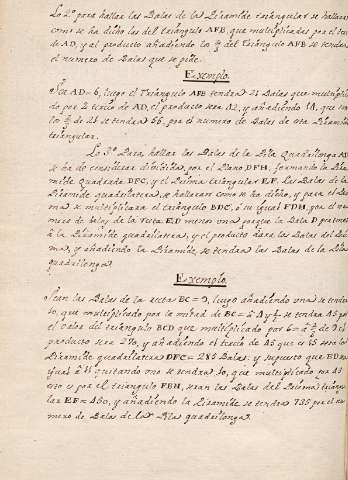 Lo 2º para hallar las Balas de la Piramide triangular se hallaran
como se ha dicho las del triangulo AFB, que multiplicadas por el tercio
de AD, y al producto añadiendo los 2/3 del Triangulo AFB se tendra
el numero de Balas que se pide.
Exemplo.
Sea AD=6, luego el Triangulo AFB tendra 21 Balas que multiplica-
do por 2 tercio de AD, el producto sera 42, y añadiendo 14, que son
los 2/3 de 21 se tendra 56, por el numero de Balas de esta Piramide
triangular.
Lo 3º Para hallar las Balas de la Pila quadrilonga AD
se ha de considerar dividida, por el Plano DFH, formando la Pira-
mide quadrada DFC, y el Prisma triangular EF. Las Balas de la
Piramide quadrilatera se hallaran como se ha dicho, y para el Pris-
ma se multiplicara el triangulo BDC, ó su igual FDH, por el nu-
mero de balas de la recta ED menos una porque la Bala D pertenece
á la Piramide quadrilatera, y el producto dara las Balas del Pris-
ma, y añadiendo la Piramide, se tendran las Balas de la Pila
quadrilonga.
Exemplo.
Sean las Balas de la recta BC=9, luego añadiendo una se tendra
10, que multiplicado por la mitad de BC=4 y 1/2 se tendra 45 por
el valor del triangulo BCD que multiplicado por 6= á 2/3 de 9 el
producto sera 270, y añadiendo el tercio de 45 que es 15 sera la
Piramide quadrilatera DFC=285 Balas: y supuesto que ED sea
igual á 11 quitando una se tendra 10, que multiplicado por 45
esto es por el triangulo FBH, seran las Balas del Prisma triangu-
lar EF=450, y añadiendo la Piramide se tendran 735 por el nu-
mero de Balas de la Pila quadrilonga.